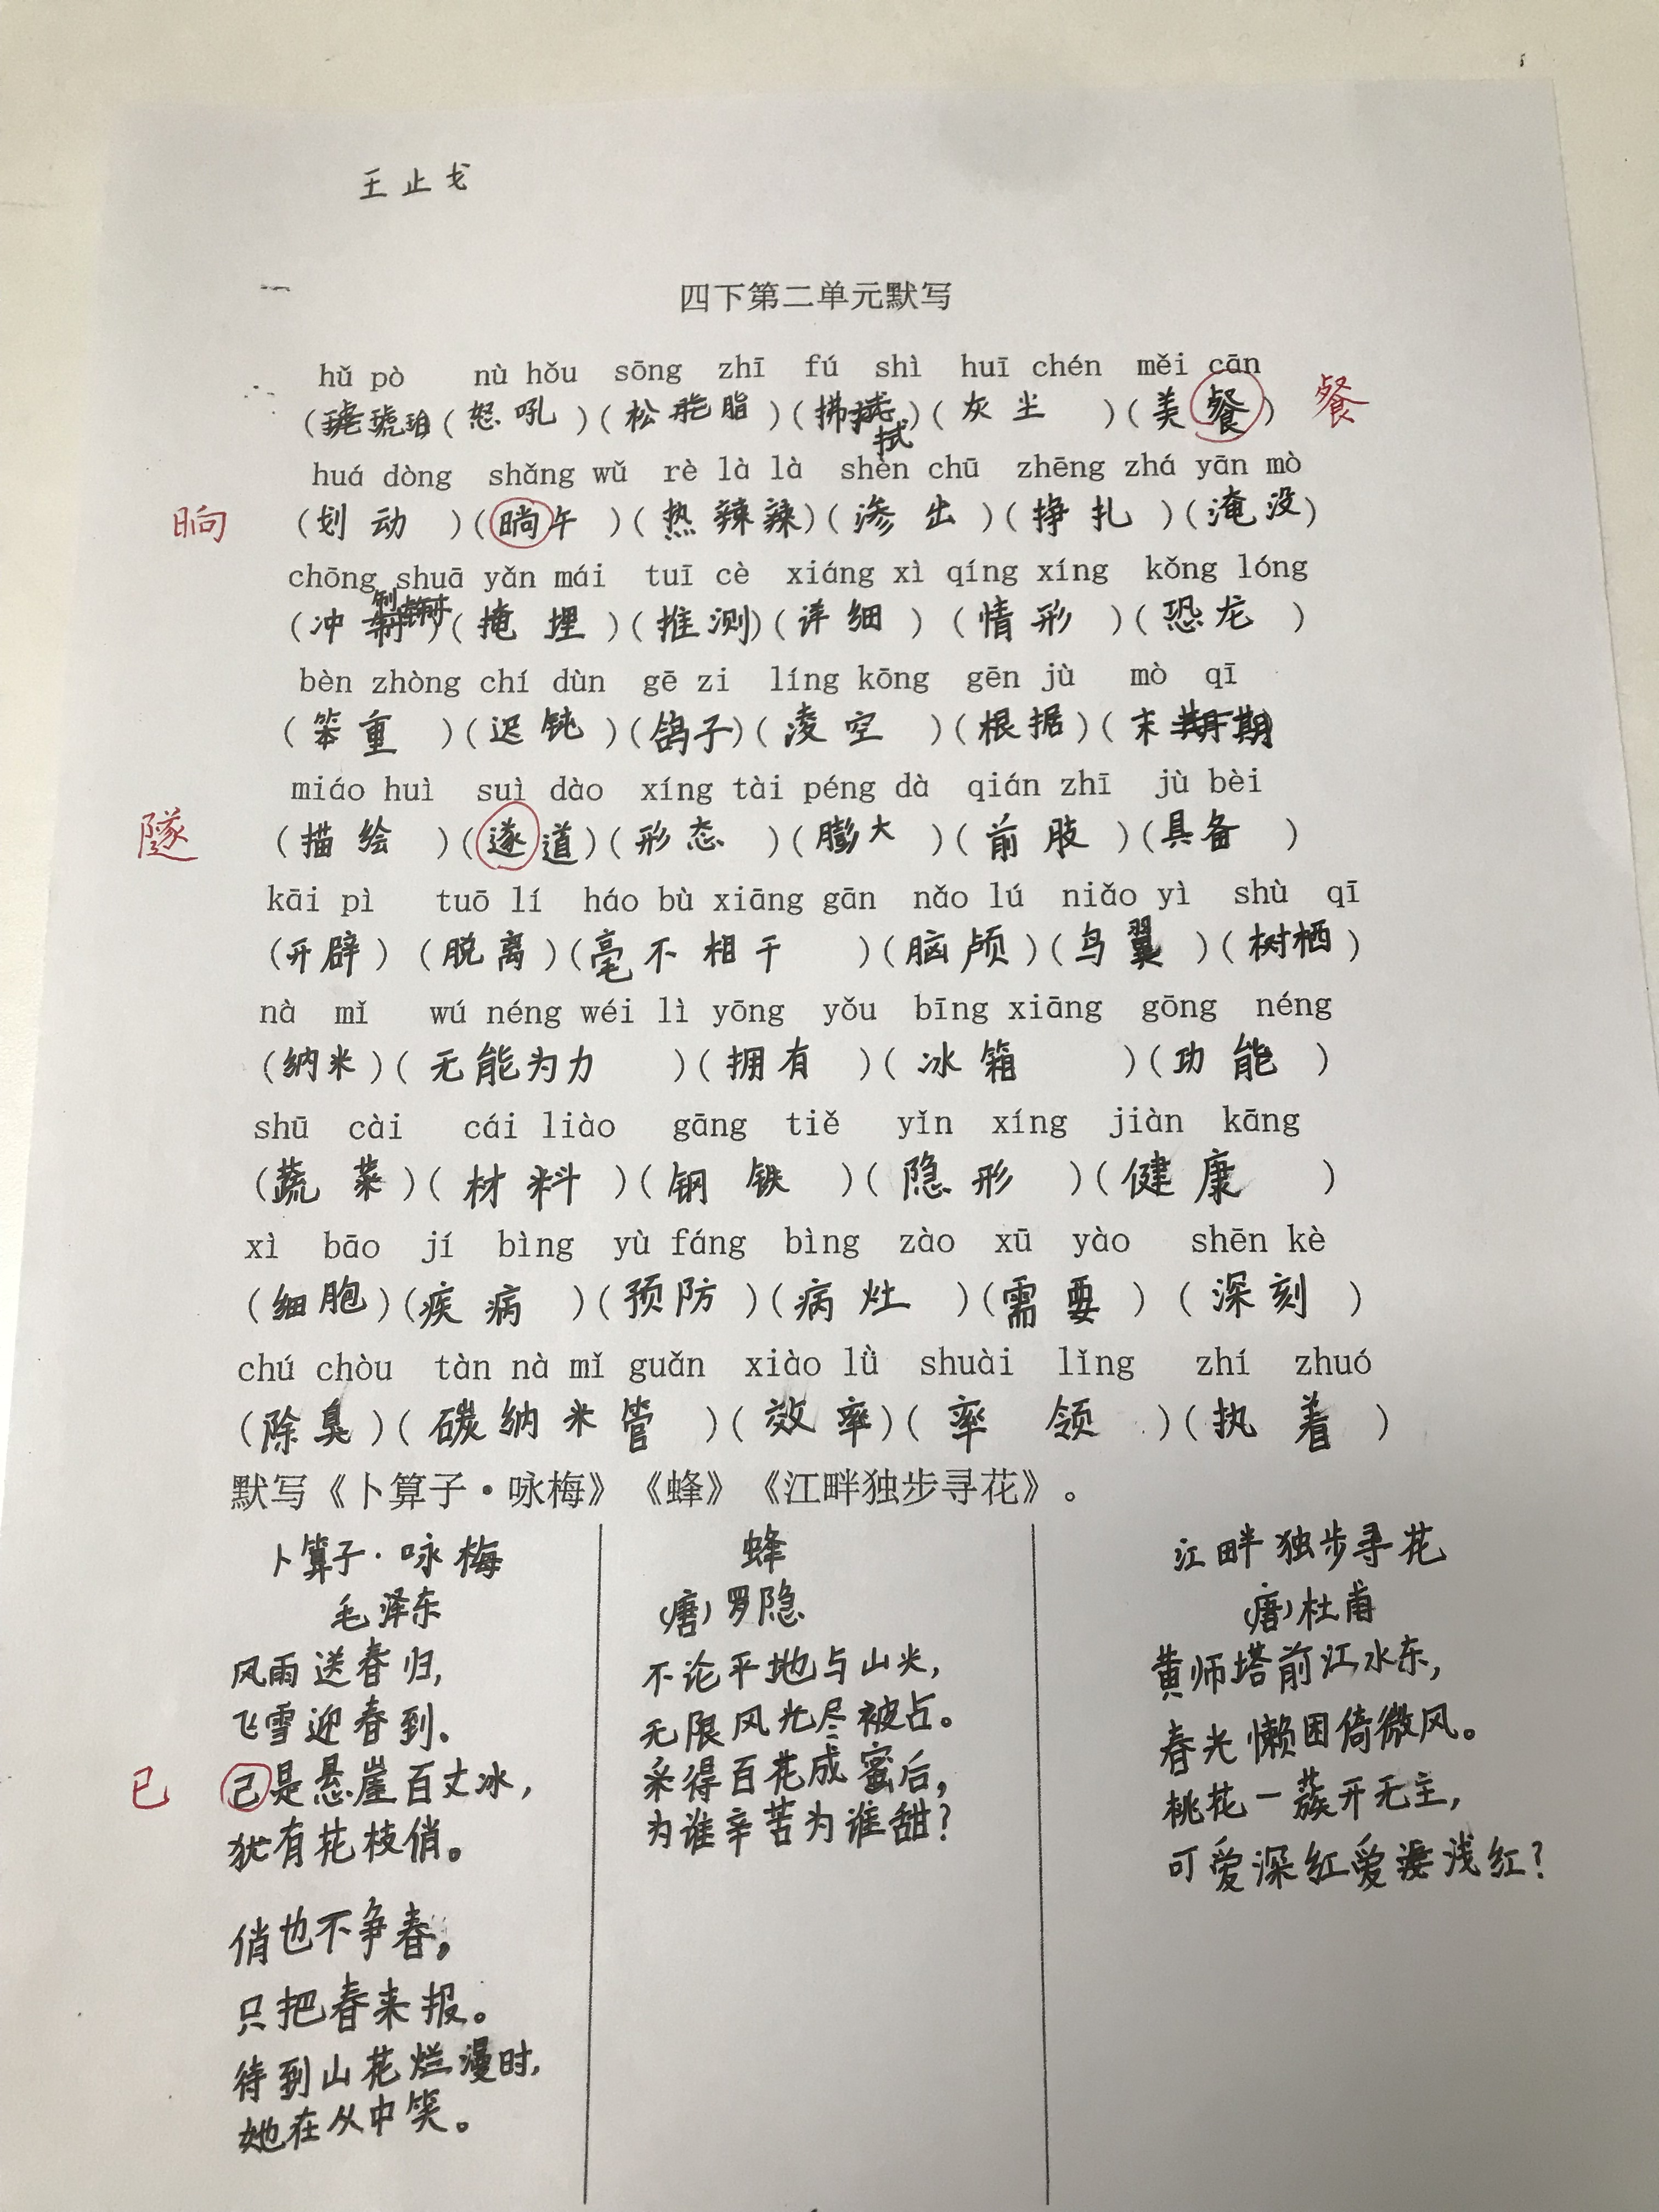 王止戈
四下第二单元默写
hǔ pò nù hǒu sōng zhī fú shì huī chén měi cān
(琥珀)(怒吼)(松脂)(拂拭)(灰尘)(美餐) 餐
huá dòng shǎng wǔ rè là là shèn chū zhēng zhá yān mò
晌 (划动)(晌午)(热辣辣)(渗出)(挣扎)(淹没)
chōng shuā yǎn mái tuī cè xiáng xì qíng xíng kǒng lóng
(冲刷)(掩埋)(推测)(详细)(情形)(恐龙)
bèn zhòng chí dùn gē zi líng kōng gēn jù mò qī
(笨重)(迟钝)(鸽子)(凌空)(根据)(末期)
miáo huì suì dào xíng tài péng dà qián zhī jù bèi
隧 (描绘)(遂道)(形态)(膨大)(前肢)(具备)
kāi pì tuō lí háo bù xiāng gān nǎo lú niǎo yì shù qī
(开辟)(脱离)(毫不相干)(脑颅)(鸟翼)(树栖)
nà mǐ wú néng wéi lì yōng yǒu bīng xiāng gōng néng
(纳米)(无能为力)(拥有)(冰箱)(功能)
shū cài cái liào gāng tiě yǐn xíng jiàn kāng
(蔬菜)(材料)(钢铁)(隐形)(健康)
xì bāo jí bìng yù fáng bìng zào xū yào shēn kè
(细胞)(疾病)(预防)(病灶)(需要)(深刻)
chú chòu tàn nà mǐ guǎn xiào lǜ shuài lǐng zhí zhuó
(除臭)(碳纳米管)(效率)(率领)(执着)
默写《卜算子·咏梅》《蜂》《江畔独步寻花》。
卜算子·咏梅
毛泽东
风雨送春归,
飞雪迎春到.
已 己是悬崖百丈冰,
犹有花枝俏。
俏也不争春,
只把春来报。
待到山花烂漫时,
她在从中笑。
蜂
(唐)罗隐
不论平地与山尖,
无限风光尽被占。
采得百花成蜜后,
为谁辛苦为谁甜?
江畔独步寻花
(唐)杜甫
黄师塔前江水东,
春光懒困倚微风。
桃花一簇开无主,
可爱深红爱浅红?